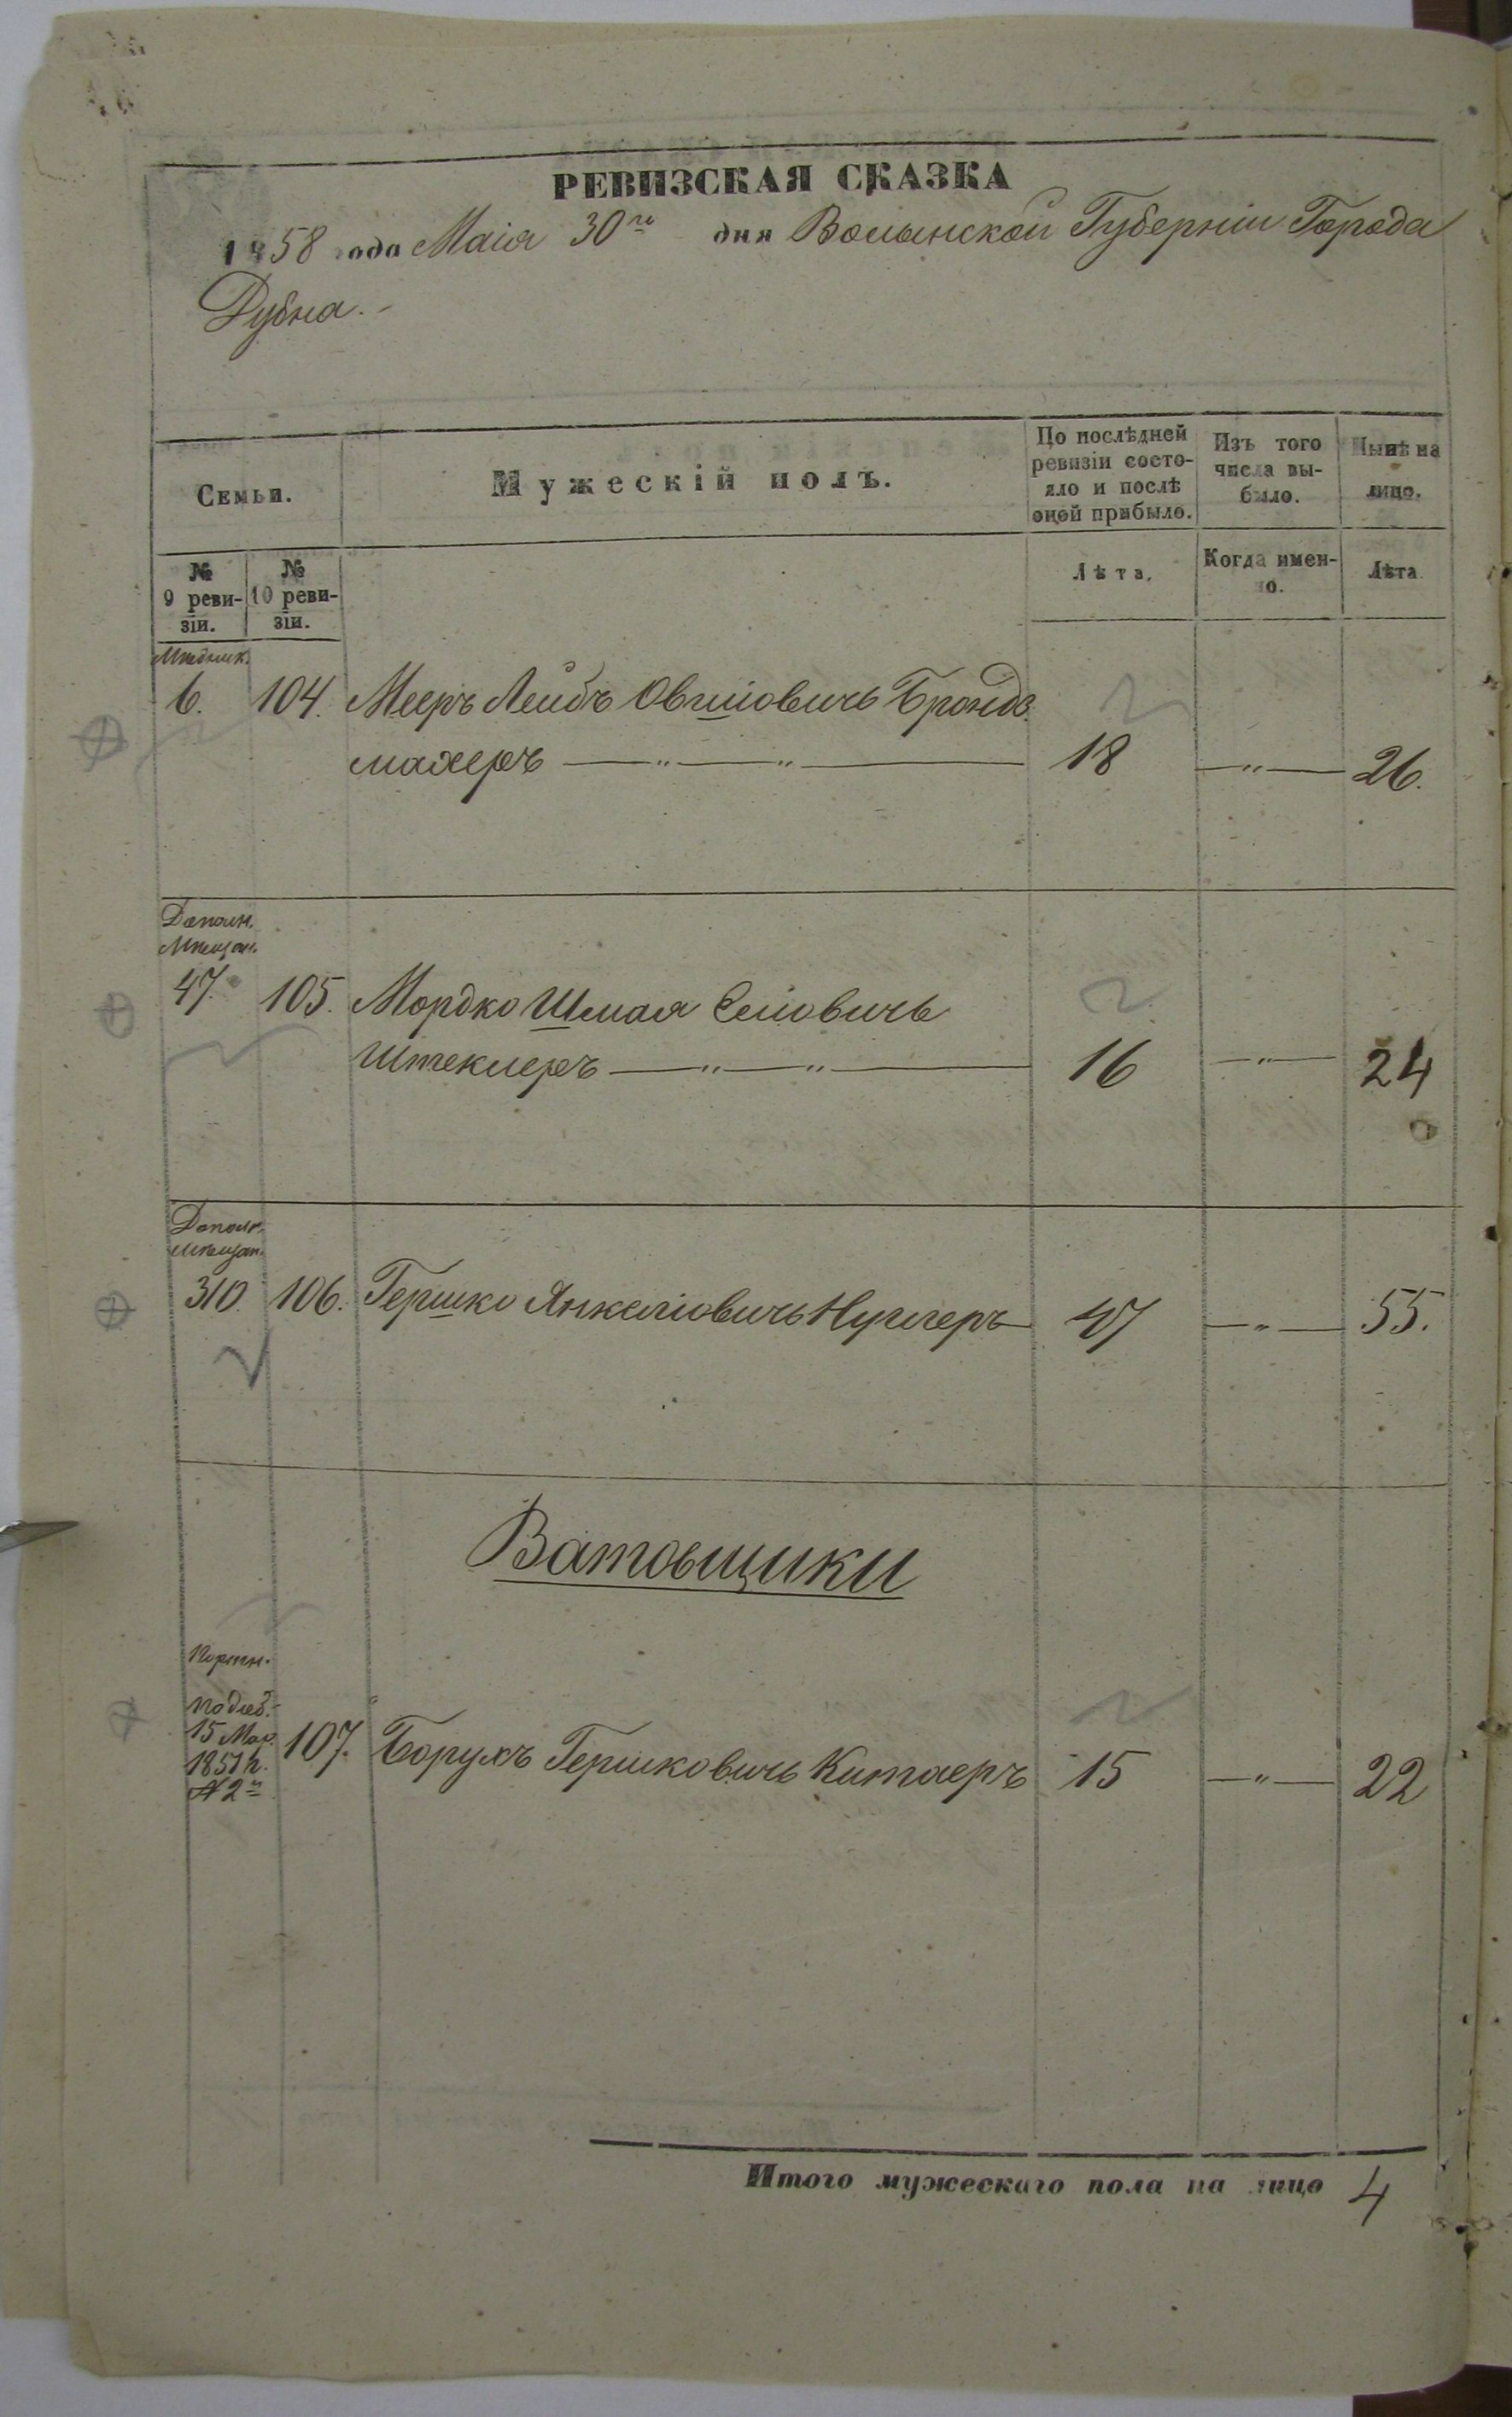 РЕВИЗСКАЯ СКАЗКА
1858 года Маія 30го дня Волынской Губерніи Города
Дубна.
Семьи.
Мужескій полъ.
По послѣдней ревизіи состо-
яло и послѣ
оной прибыло.
Изъ того
числа вы-
было.
Нынѣ на
лицо.
№
9 реви-
зіи.
№
10 реви-
зіи.
Лѣта.
Когда имен-
но.
Лѣта.
Мѣдник.
6. 104. Мееръ Лейбъ Овшіовичь Брондз
махеръ — " — " — 18 — " — 26.
Дополн.
Мѣщан.
47. 105. Мордко Шмая Селіовичь
Штеклеръ — " — " — 16 — " — 24
Дополн.
Мѣщан.
310. 106. Гершко Янкеліовичь Нуглеръ 47 — " — 55.
Ватовщики
Портн.
15 Мар.
1851 г.
№ 2й
107. Борухъ Гершковичь Китаеръ 15 — " — 22
Итого мужескаго пола на лицо 4